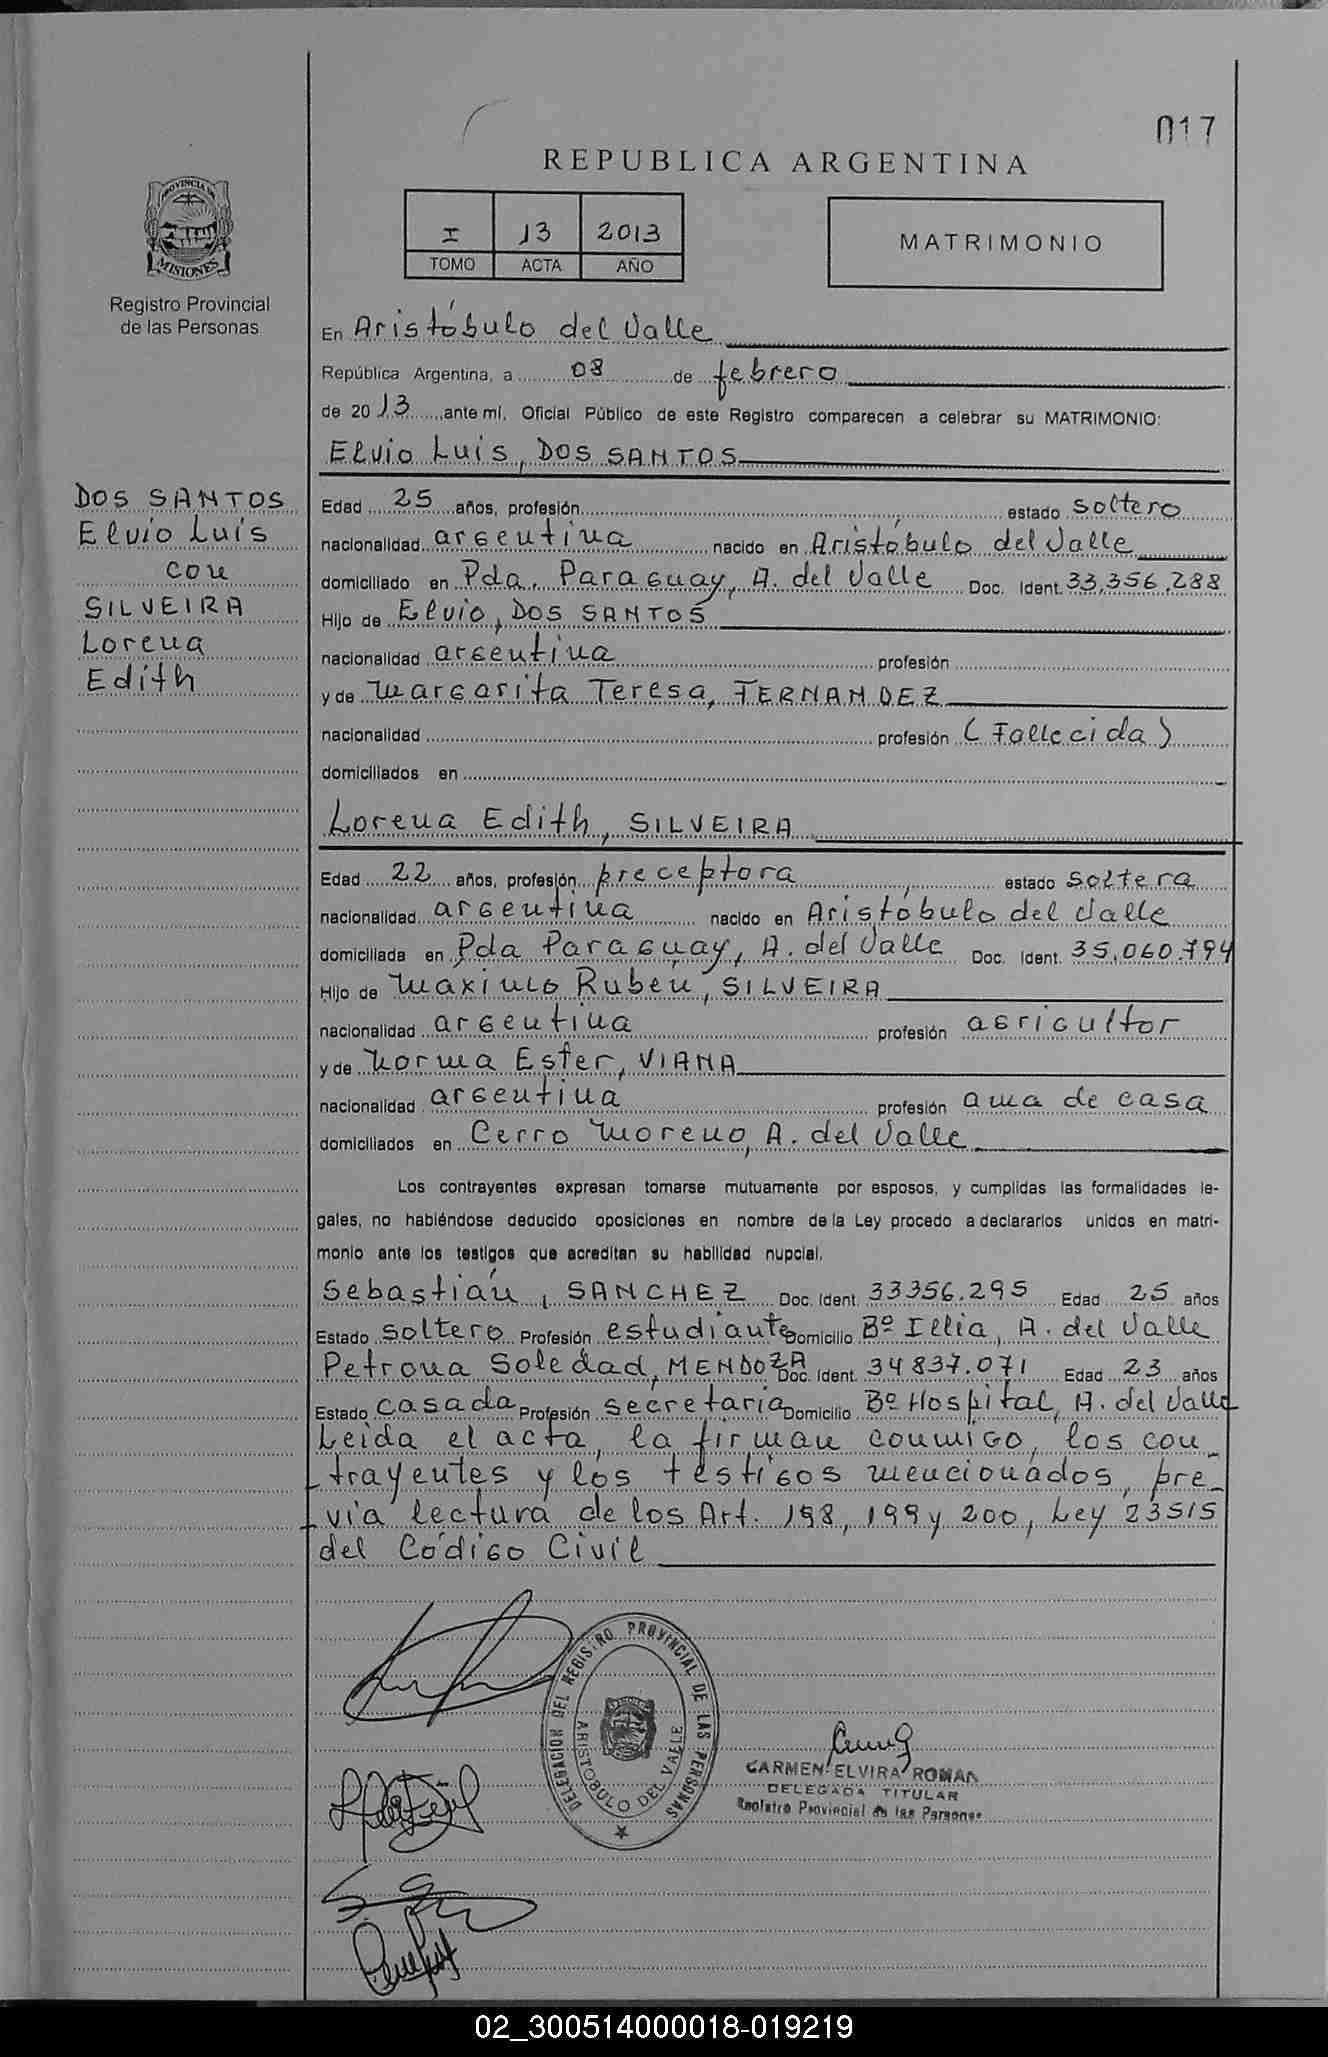 017
REPUBLICA ARGENTINA
PROVINCIA DE
MISIONES
Registro Provincial
de las Personas
I 13 2013
TOMO ACTA AÑO
MATRIMONIO
En Aristóbulo del Valle
República Argentina, a 08 de febrero
de 2013 ante mí, Oficial Público de este Registro comparecen a celebrar su MATRIMONIO:
Elvio Luis, DOS SANTOS
DOS SANTOS
Elvio Luis
con
SILVEIRA
Lorena
Edith
Edad 25 años, profesión estado soltero
nacionalidad argentina nacido en Aristóbulo del Valle
domiciliado en Pda. Paraguay, A. del Valle Doc. Ident. 33.356.288
Hijo de Elvio, DOS SANTOS
nacionalidad argentina profesión
y de Margarita Teresa, FERNANDEZ
nacionalidad profesión (Fallecida)
domiciliados en
Lorena Edith, SILVEIRA
Edad 22 años, profesión preceptora estado soltera
nacionalidad argentina nacido en Aristóbulo del Valle
domiciliada en Pda Paraguay, A. del Valle Doc. Ident. 35.060.794
Hijo de Maximo Ruben, SILVEIRA
nacionalidad argentina profesión agricultor
y de Norma Ester, VIANA
nacionalidad argentina profesión ama de casa
domiciliados en Cerro Moreno, A. del Valle
Los contrayentes expresan tomarse mutuamente por esposos, y cumplidas las formalidades le-
gales, no habiéndose deducido oposiciones en nombre de la Ley procedo a declararlos unidos en matri-
monio ante los testigos que acreditan su habilidad nupcial.
Sebastián, SANCHEZ Doc. Ident. 33356.295 Edad 25 años
Estado soltero Profesión estudiante Domicilio Bº Illia, A. del Valle
Petrona Soledad, MENDOZA Doc. Ident. 34837.071 Edad 23 años
Estado casada Profesión secretaria Domicilio Bº Hospital, A. del Valle
Leída el acta, la firman conmigo, los con_
trayentes y los testigos mencionados, pre_
via lectura de los Art. 198, 199 y 200, Ley 23515
del Código Civil
DELEGACION DEL REGISTRO PROVINCIAL DE LAS PERSONAS
ARISTOBULO DEL VALLE
CARMEN ELVIRA ROMAN
DELEGADA TITULAR
Registro Provincial de las Personas
02_300514000018-019219